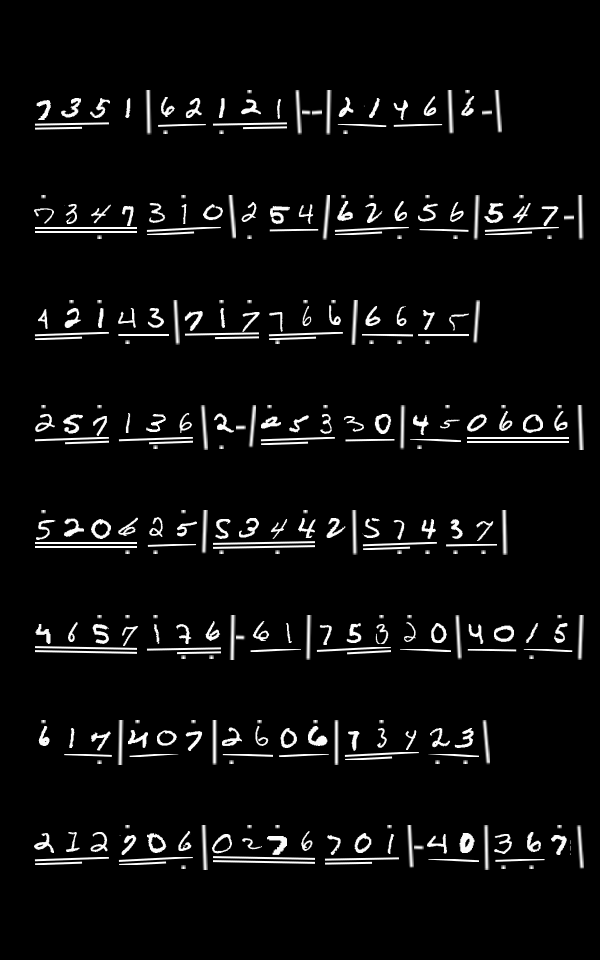 7351|62121|--|2146|6-|
7347310|254|62656|547-|
42143|717766|6675|
257136|2-|25330|450606|
520625|53442|57437|
4657176|-61|75320|4015|
617|407|2606|73423|
212706|0276701|-40|367|